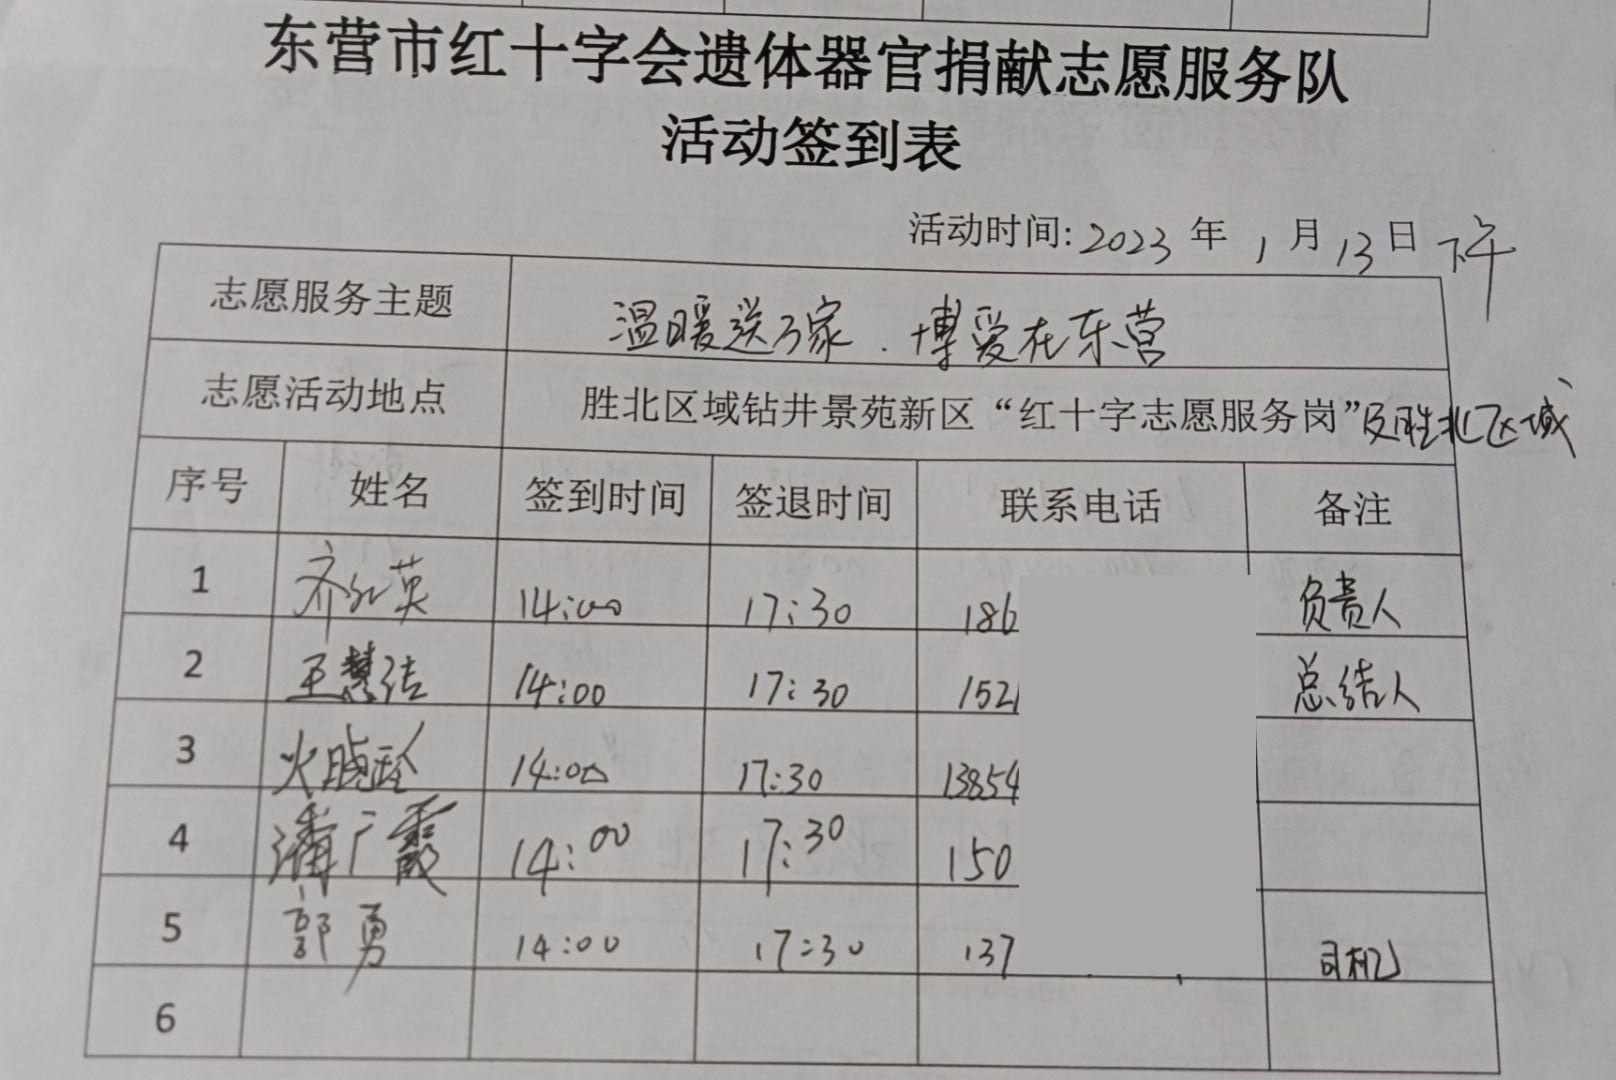 东营市红十字会遗体器官捐献志愿服务队
活动签到表
活动时间:2023年1月13日下午
志愿服务主题 温暖送万家.博爱在东营
志愿活动地点 胜北区域钻井景苑新区“红十字志愿服务岗”及胜北区域
序号 姓名 签到时间 签退时间 联系电话 备注
1 齐红英 14:00 17:30 186 负责人
2 王慧洁 14:00 17:30 1521 总结人
3 火晓玲 14:00 17:30 13854
4 潘广霞 14:00 17:30 150
5 郭勇 14:00 17:30 137 司机
6